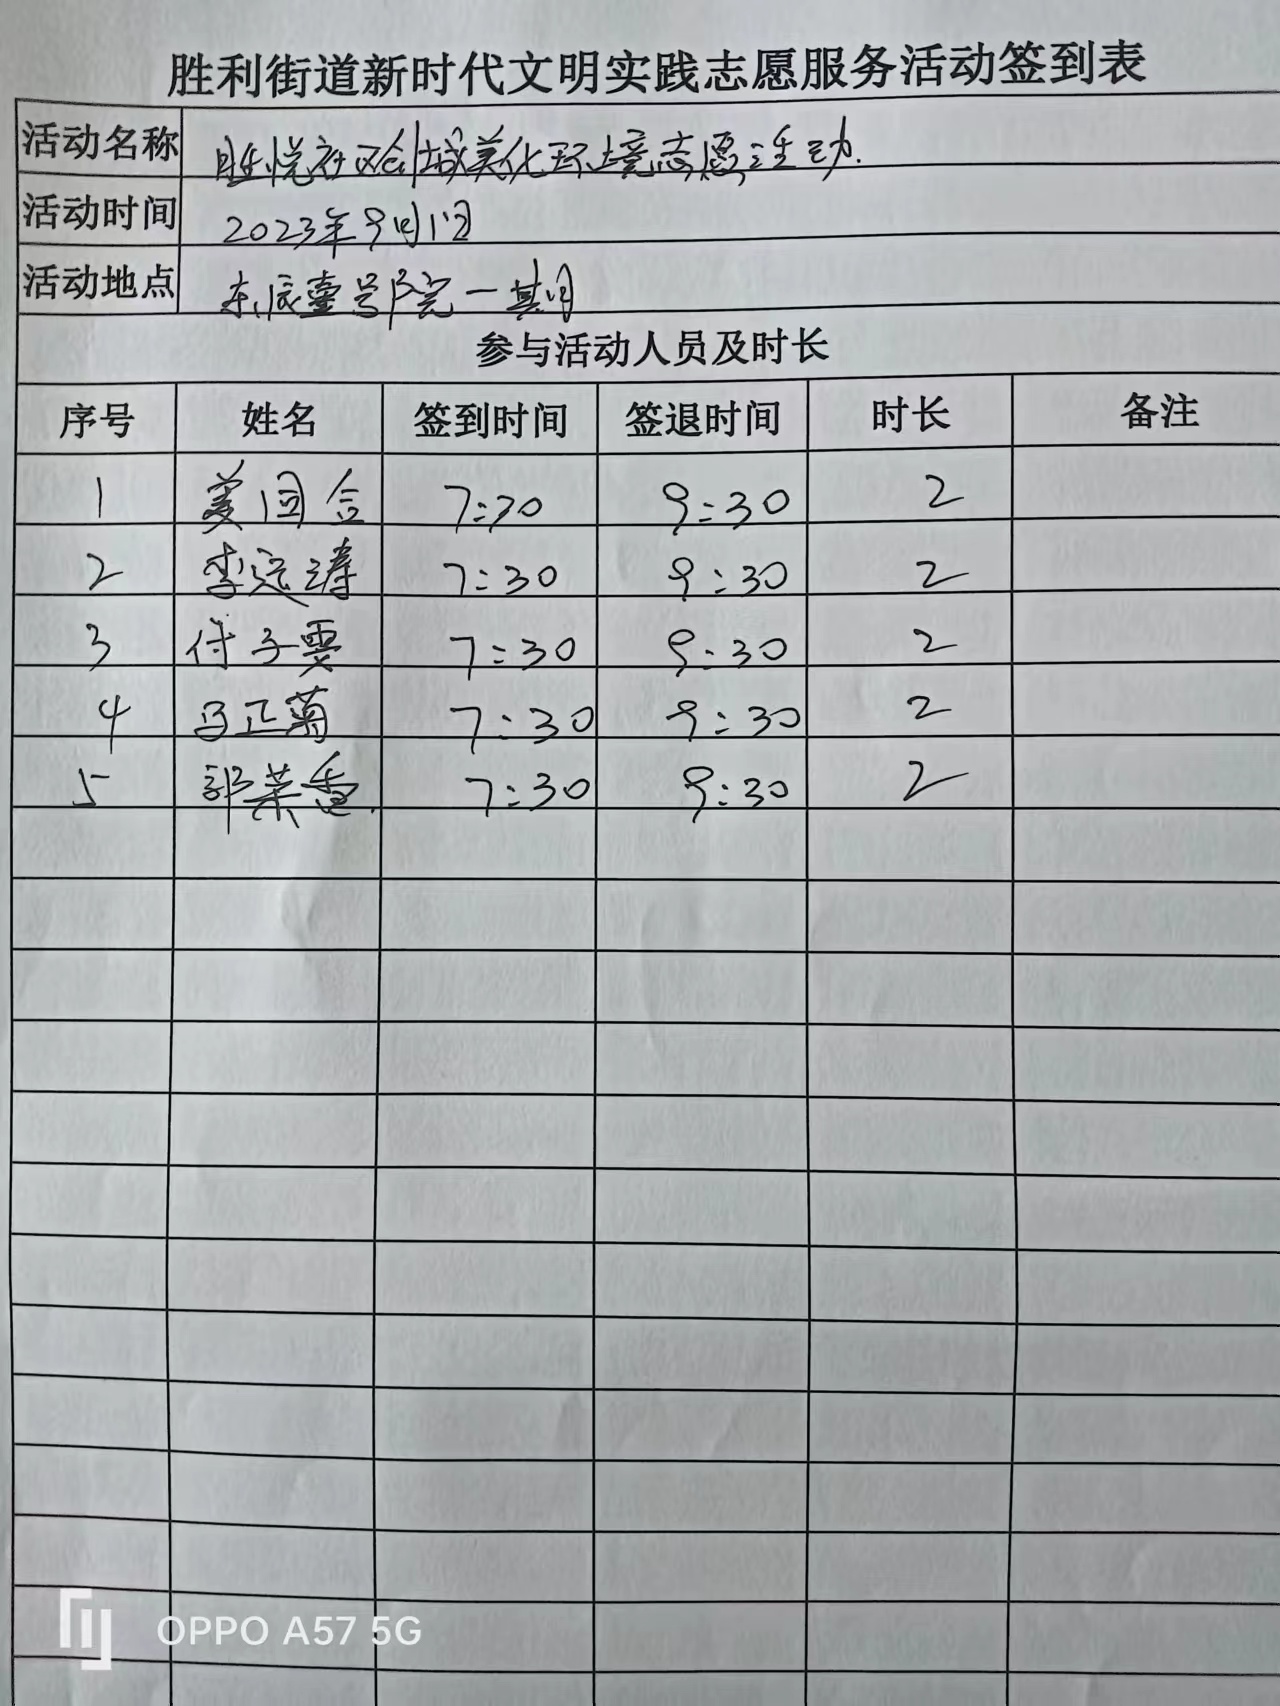 胜利街道新时代文明实践志愿服务活动签到表
活动名称 胜悦社区创城美化环境志愿活动.
活动时间 2023年9月1日
活动地点 东辰壹号院一期
参与活动人员及时长
序号 姓名 签到时间 签退时间 时长 备注
1 姜国合 7:30 9:30 2
2 李远涛 7:30 9:30 2
3 付子雯 7:30 9:30 2
4 马正菊 7:30 9:30 2
5 郭菜香. 7:30 9:30 2
OPPO A57 5G